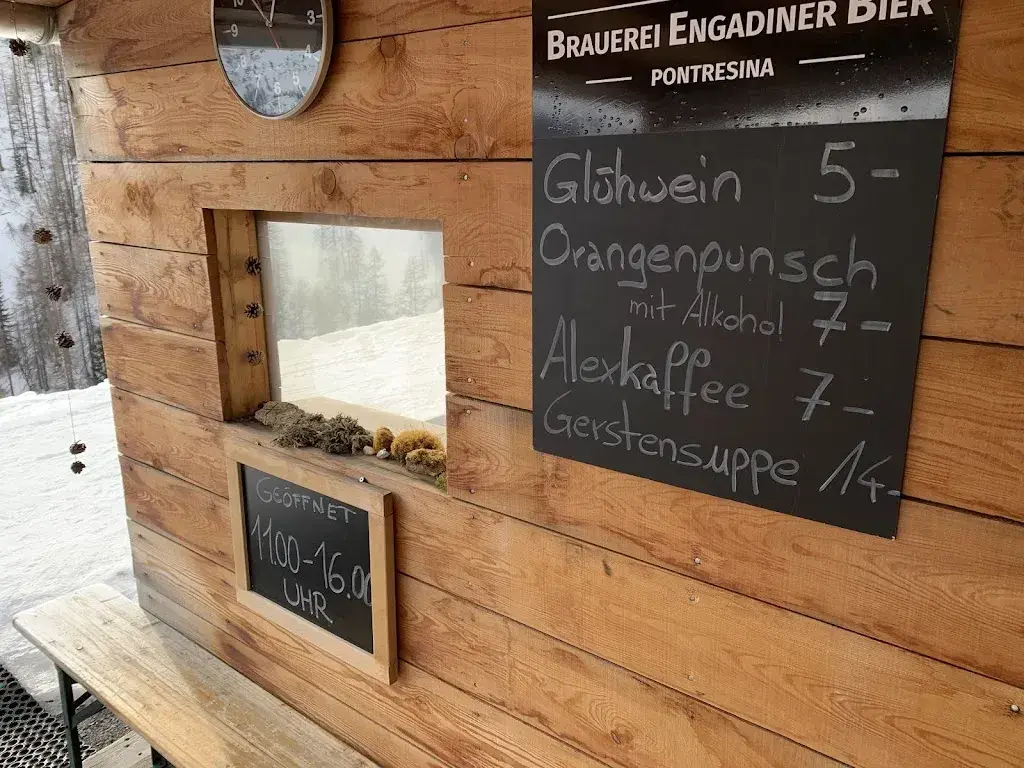 10
3
9
4
BRAUEREI ENGADINER BIER
PONTRESINA
Glühwein 5-
Orangenpunsch
mit Alkohol 7-
Alexkaffee 7-
Gerstensuppe 14-
GEÖFFNET
11.00-16.00
UHR